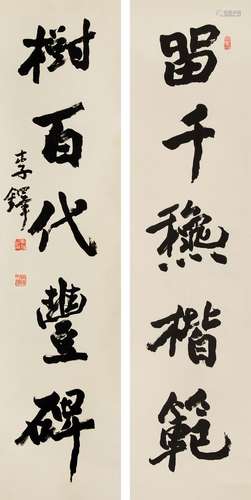 留千穐楷範
樹百代豐碑
李鐸